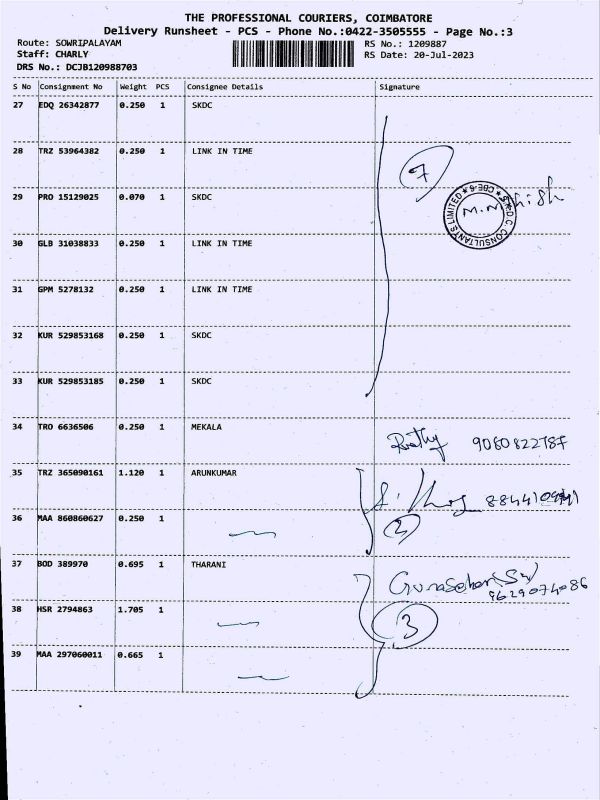 THE PROFESSIONAL COURIERS, COIMBATORE
Delivery Runsheet - PCS - Phone No.:0422-3505555 - Page No.:3
Route: SOWRIPALAYAM
RS No.: 1209887
Staff: CHARLY
RS Date: 20-Jul-2023
DRS No.: DCJB120988703
S No Consignment No Weight PCS Consignee Details Signature
27 EDQ 26342877 0.250 1 SKDC
28 TRZ 53964382 0.250 1 LINK IN TIME
7
29 PRO 15129025 0.070 1 SKDC
30 GLB 31038833 0.250 1 LINK IN TIME
31 GPM 5278132 0.250 1 LINK IN TIME
32 KUR 529853168 0.250 1 SKDC
33 KUR 529853185 0.250 1 SKDC
34 TRO 6636506 0.250 1 MEKALA
9080822787
35 TRZ 365090161 1.120 1 ARUNKUMAR
36 MAA 860860627 0.250 1
2
37 BOD 389970 0.695 1 THARANI
9629074086
38 HSR 2794863 1.705 1
3
39 MAA 297060011 0.665 1